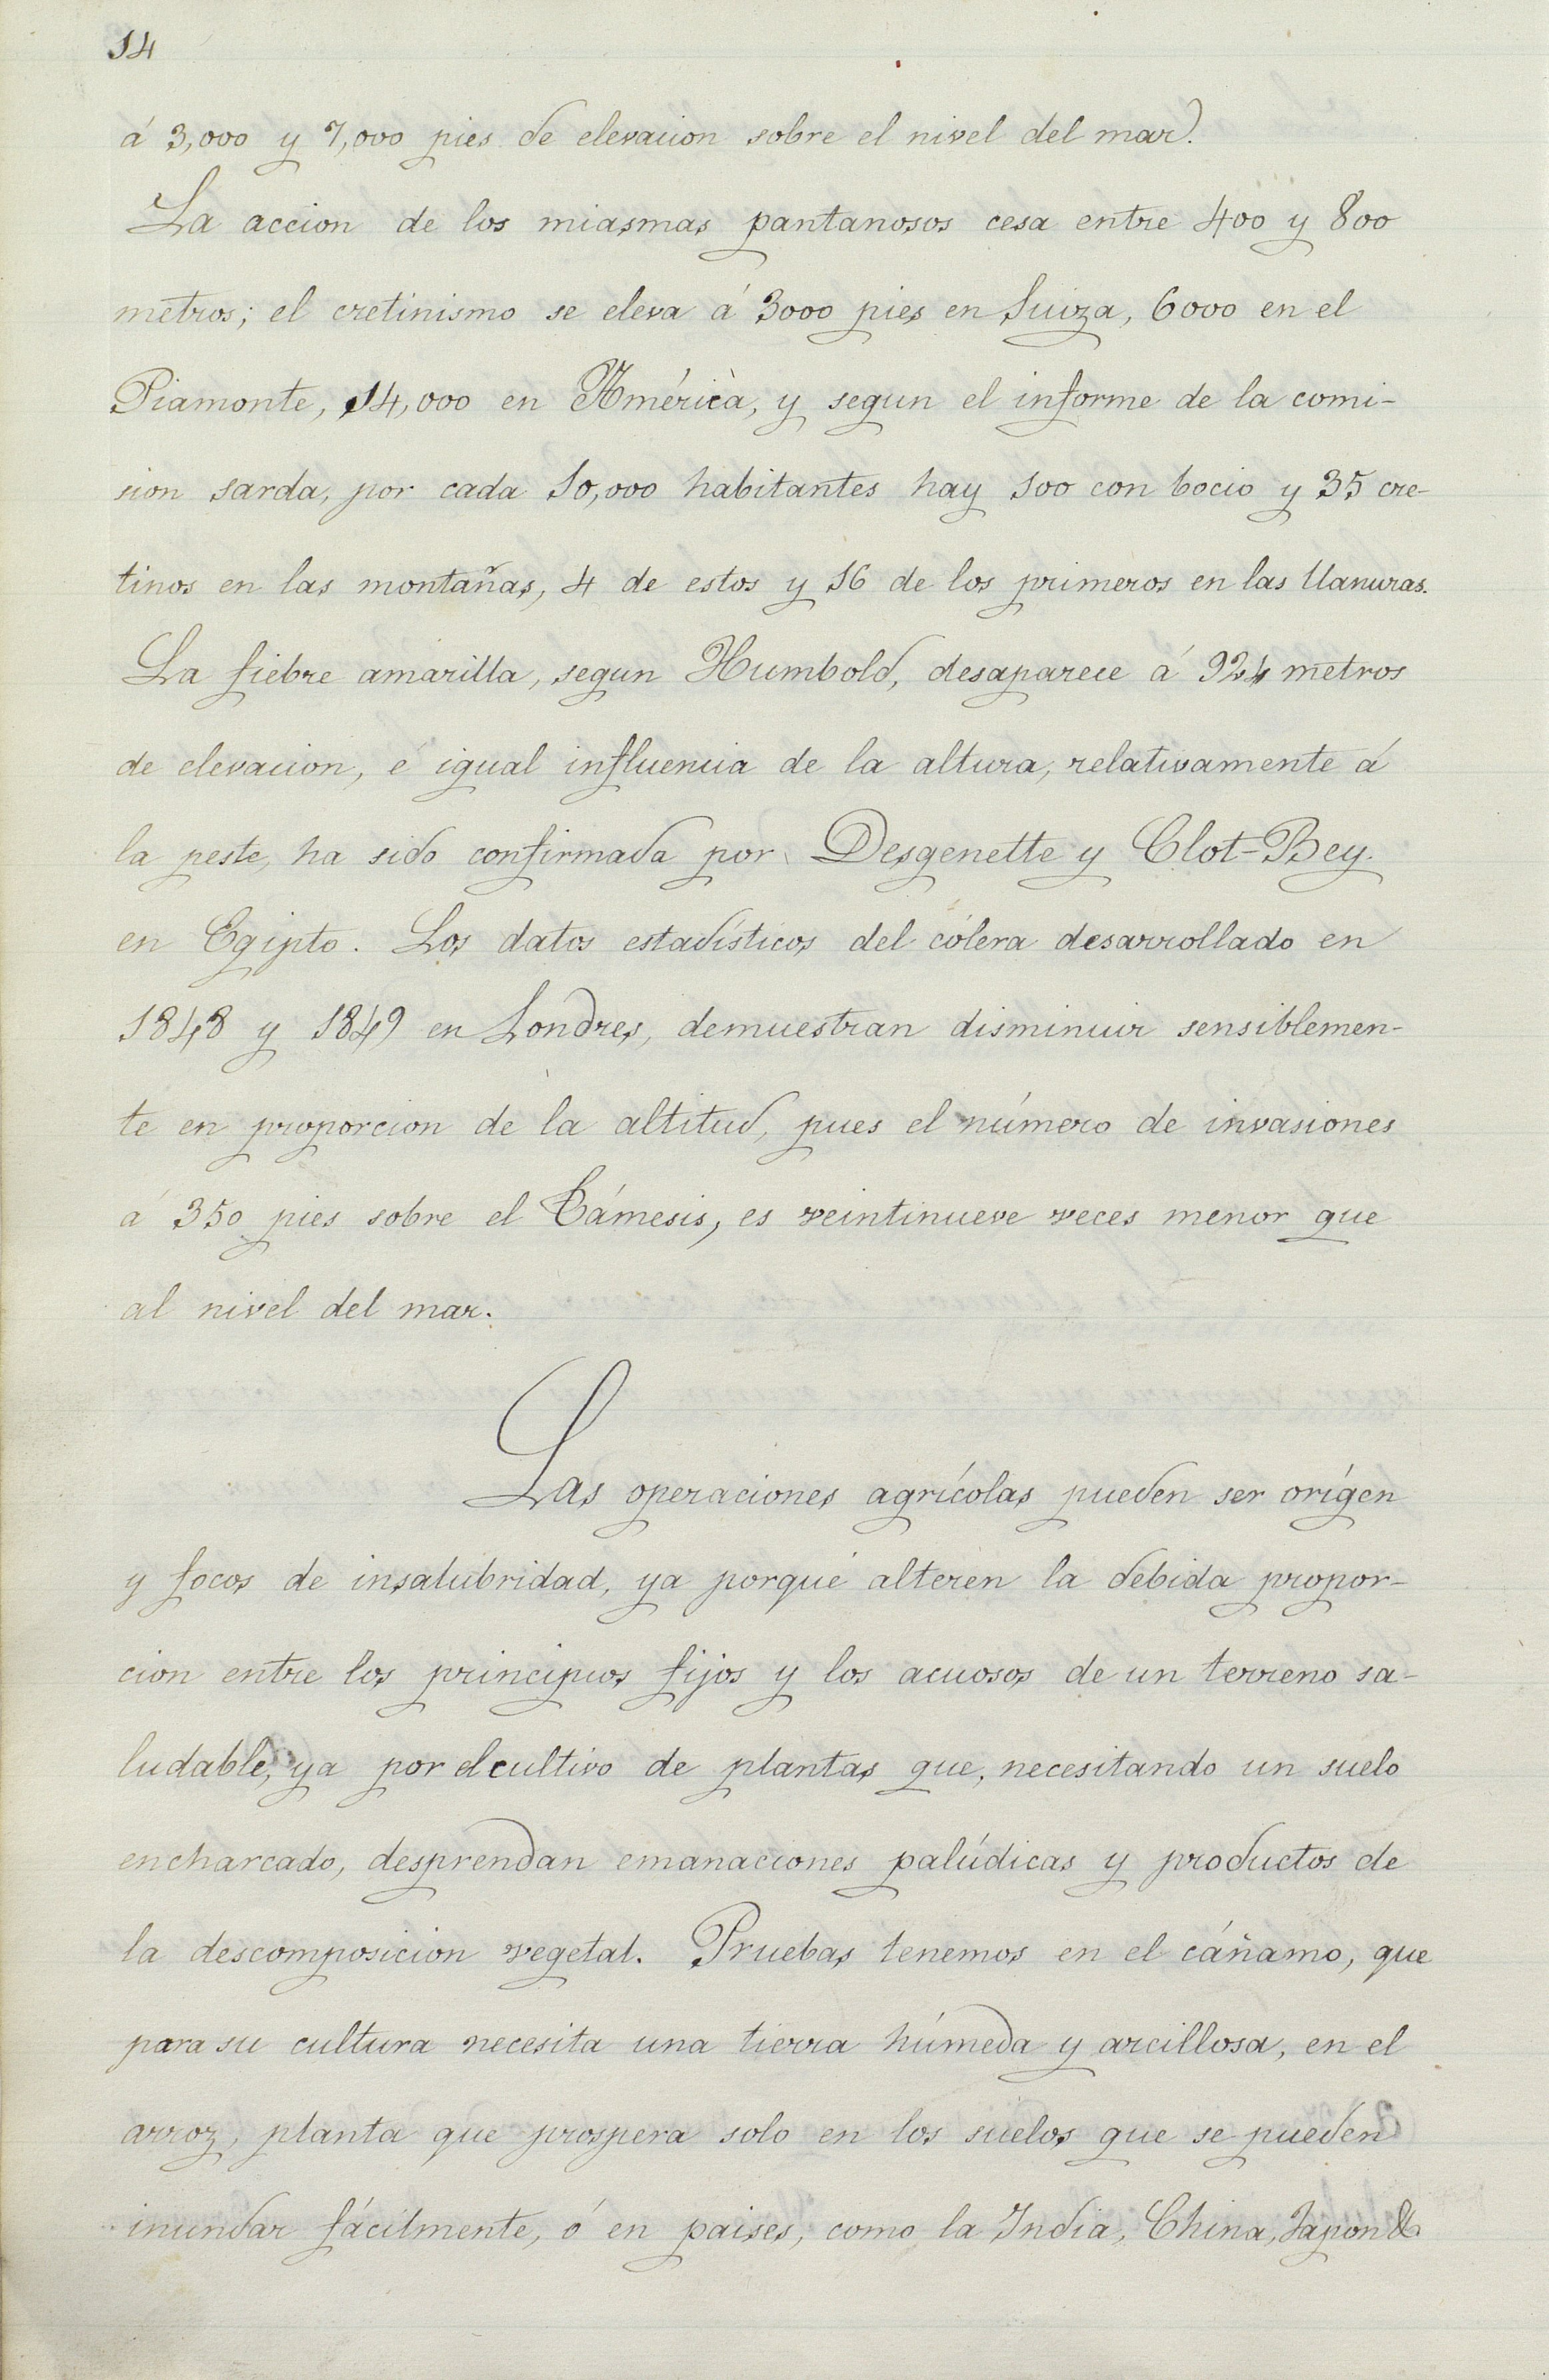 14
á 3,000 y 7,000 pies de elevacion sobre el nivel del mar.
La accion de los miasmas pantanosos cesa entre 400 y 800
metros; el cretinismo se eleva á 3000 pies en Suiza, 6000 en el
Piamonte, 14,000 en América, y segun el informe de la comi-
sion sarda, por cada 10,000 habitantes hay 100 con bocio y 35 cre-
tinos en las montañas, 4 de estos y 16 de los primeros en las llanuras.
La fiebre amarilla, segun Humbold, desaparece á 924 metros
de elevacion, é igual influencia de la altura, relativamente á
la peste, ha sido confirmada por Desgenette y Clot-Bey.
en Egipto. Los datos estadísticos del cólera desarrollado en
1848 y 1849 en Londres, demuestran disminuir sensiblemen-
te en proporcion de la altitud, pues el número de invasiones
á 350 pies sobre el Támesis, es veintinueve veces menor que
al nivel del mar.
Las operaciones agrícolas pueden ser orígen
y focos de insalubridad, ya porque alteren la debida propor-
cion entre los principios fijos y los acuosos de un terreno sa-
ludable, ya por el cultivo de plantas que, necesitando un suelo
encharcado, desprendan emanaciones palúdicas y productos de
la descomposicion vegetal. Pruebas tenemos en el cáñamo, que
para su cultura necesita una tierra húmeda y arcillosa, en el
arroz, planta que prospera solo en los suelos que se pueden
inundar fácilmente, ó en paises, como la India, China, Japon &